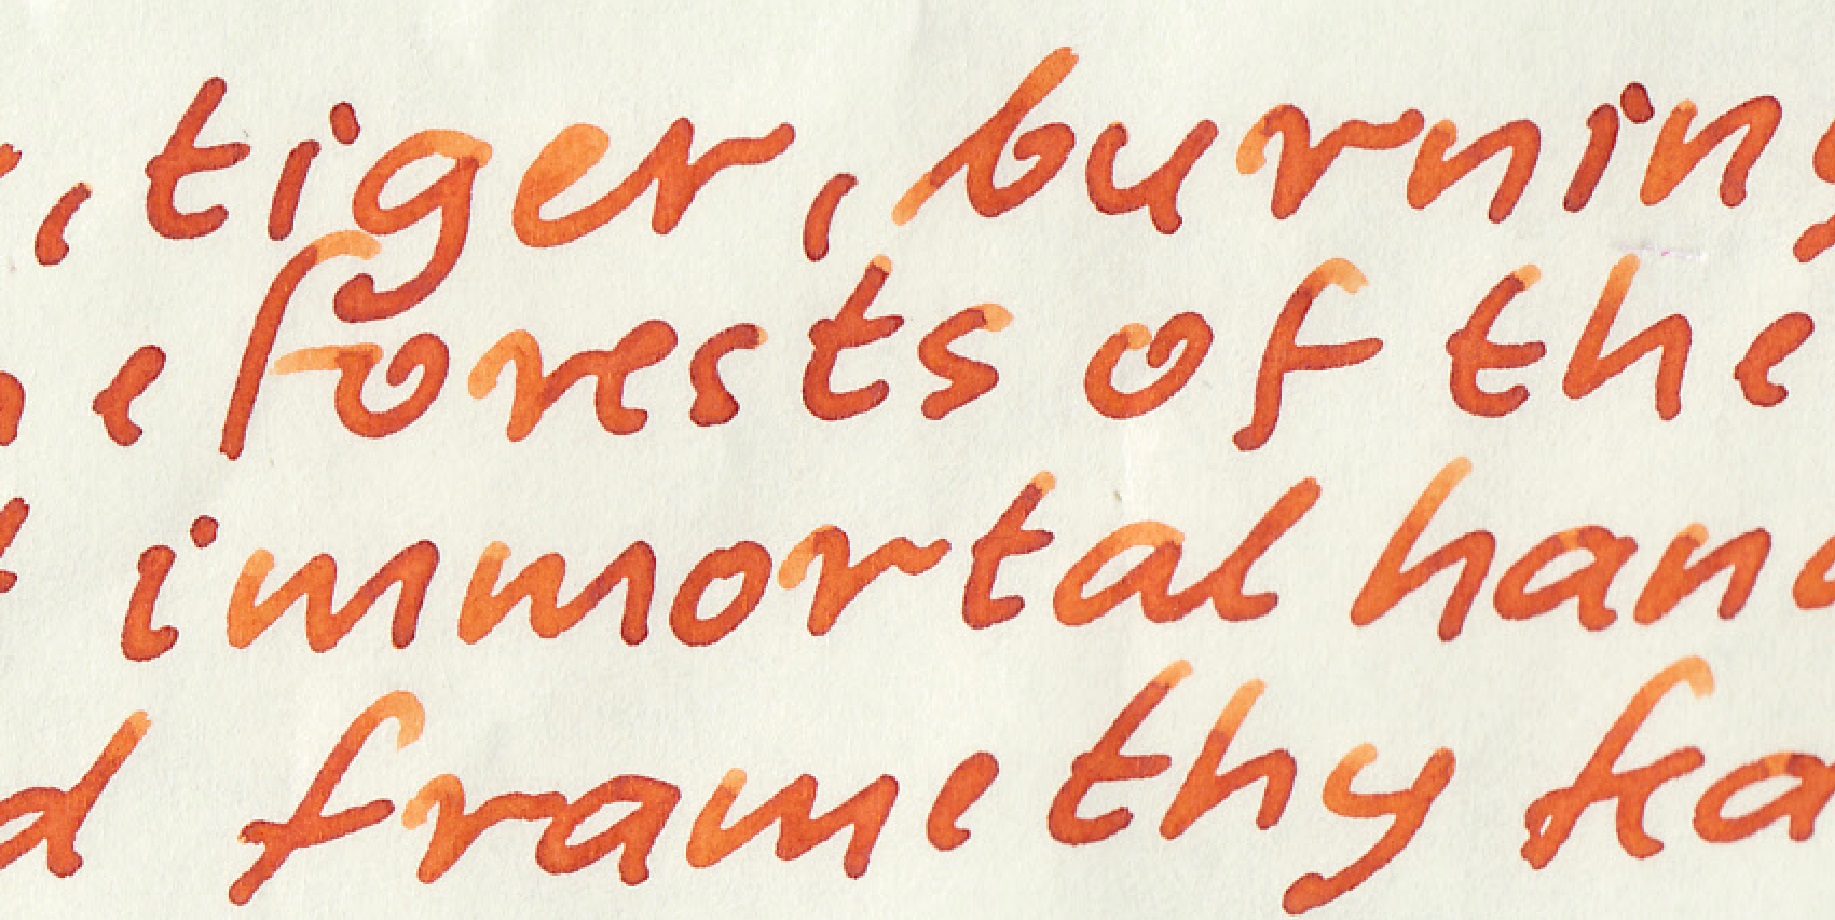 , tiger, burning
e forests of the
immortal hand
d frame thy fea